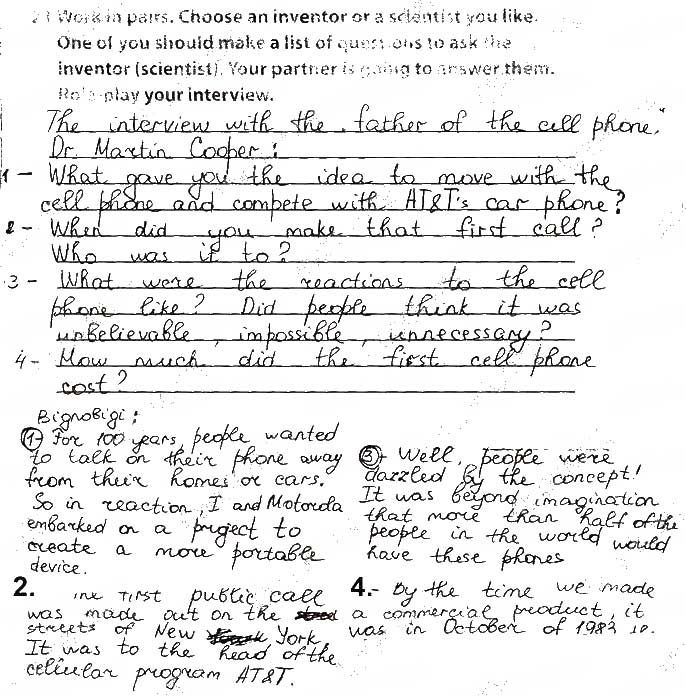 21 Work in pairs. Choose an inventor or a scientist you like.
One of you should make a list of questions to ask the
inventor (scientist). Your partner is going to answer them.
Role-play your interview.
The interview with the father of the cell phone,
Dr. Martin Cooper:
1 - What gave you the idea to move with the
cell phone and compete with AT&T's car phone?
2 - When did you make that first call?
Who was it to?
3 - What were the reactions to the cell
phone like? Did people think it was
unbelievable, impossible, unnecessary?
4 - How much did the first cell phone
cost?
Відповіді:
1- For 100 years, people wanted
to talk on their phone away
from their homes or cars.
So in reaction, I and Motorola
embarked on a project to
create a more portable
device.
2. The first public call
was made out on the
streets of New York
It was to the head of the
cellular program AT&T.
3- Well, people were
dazzled by the concept!
It was beyond imagination
that more than half of the
people in the world would
have these phones
4.- By the time we made
a commercial product, it
was in October of 1983